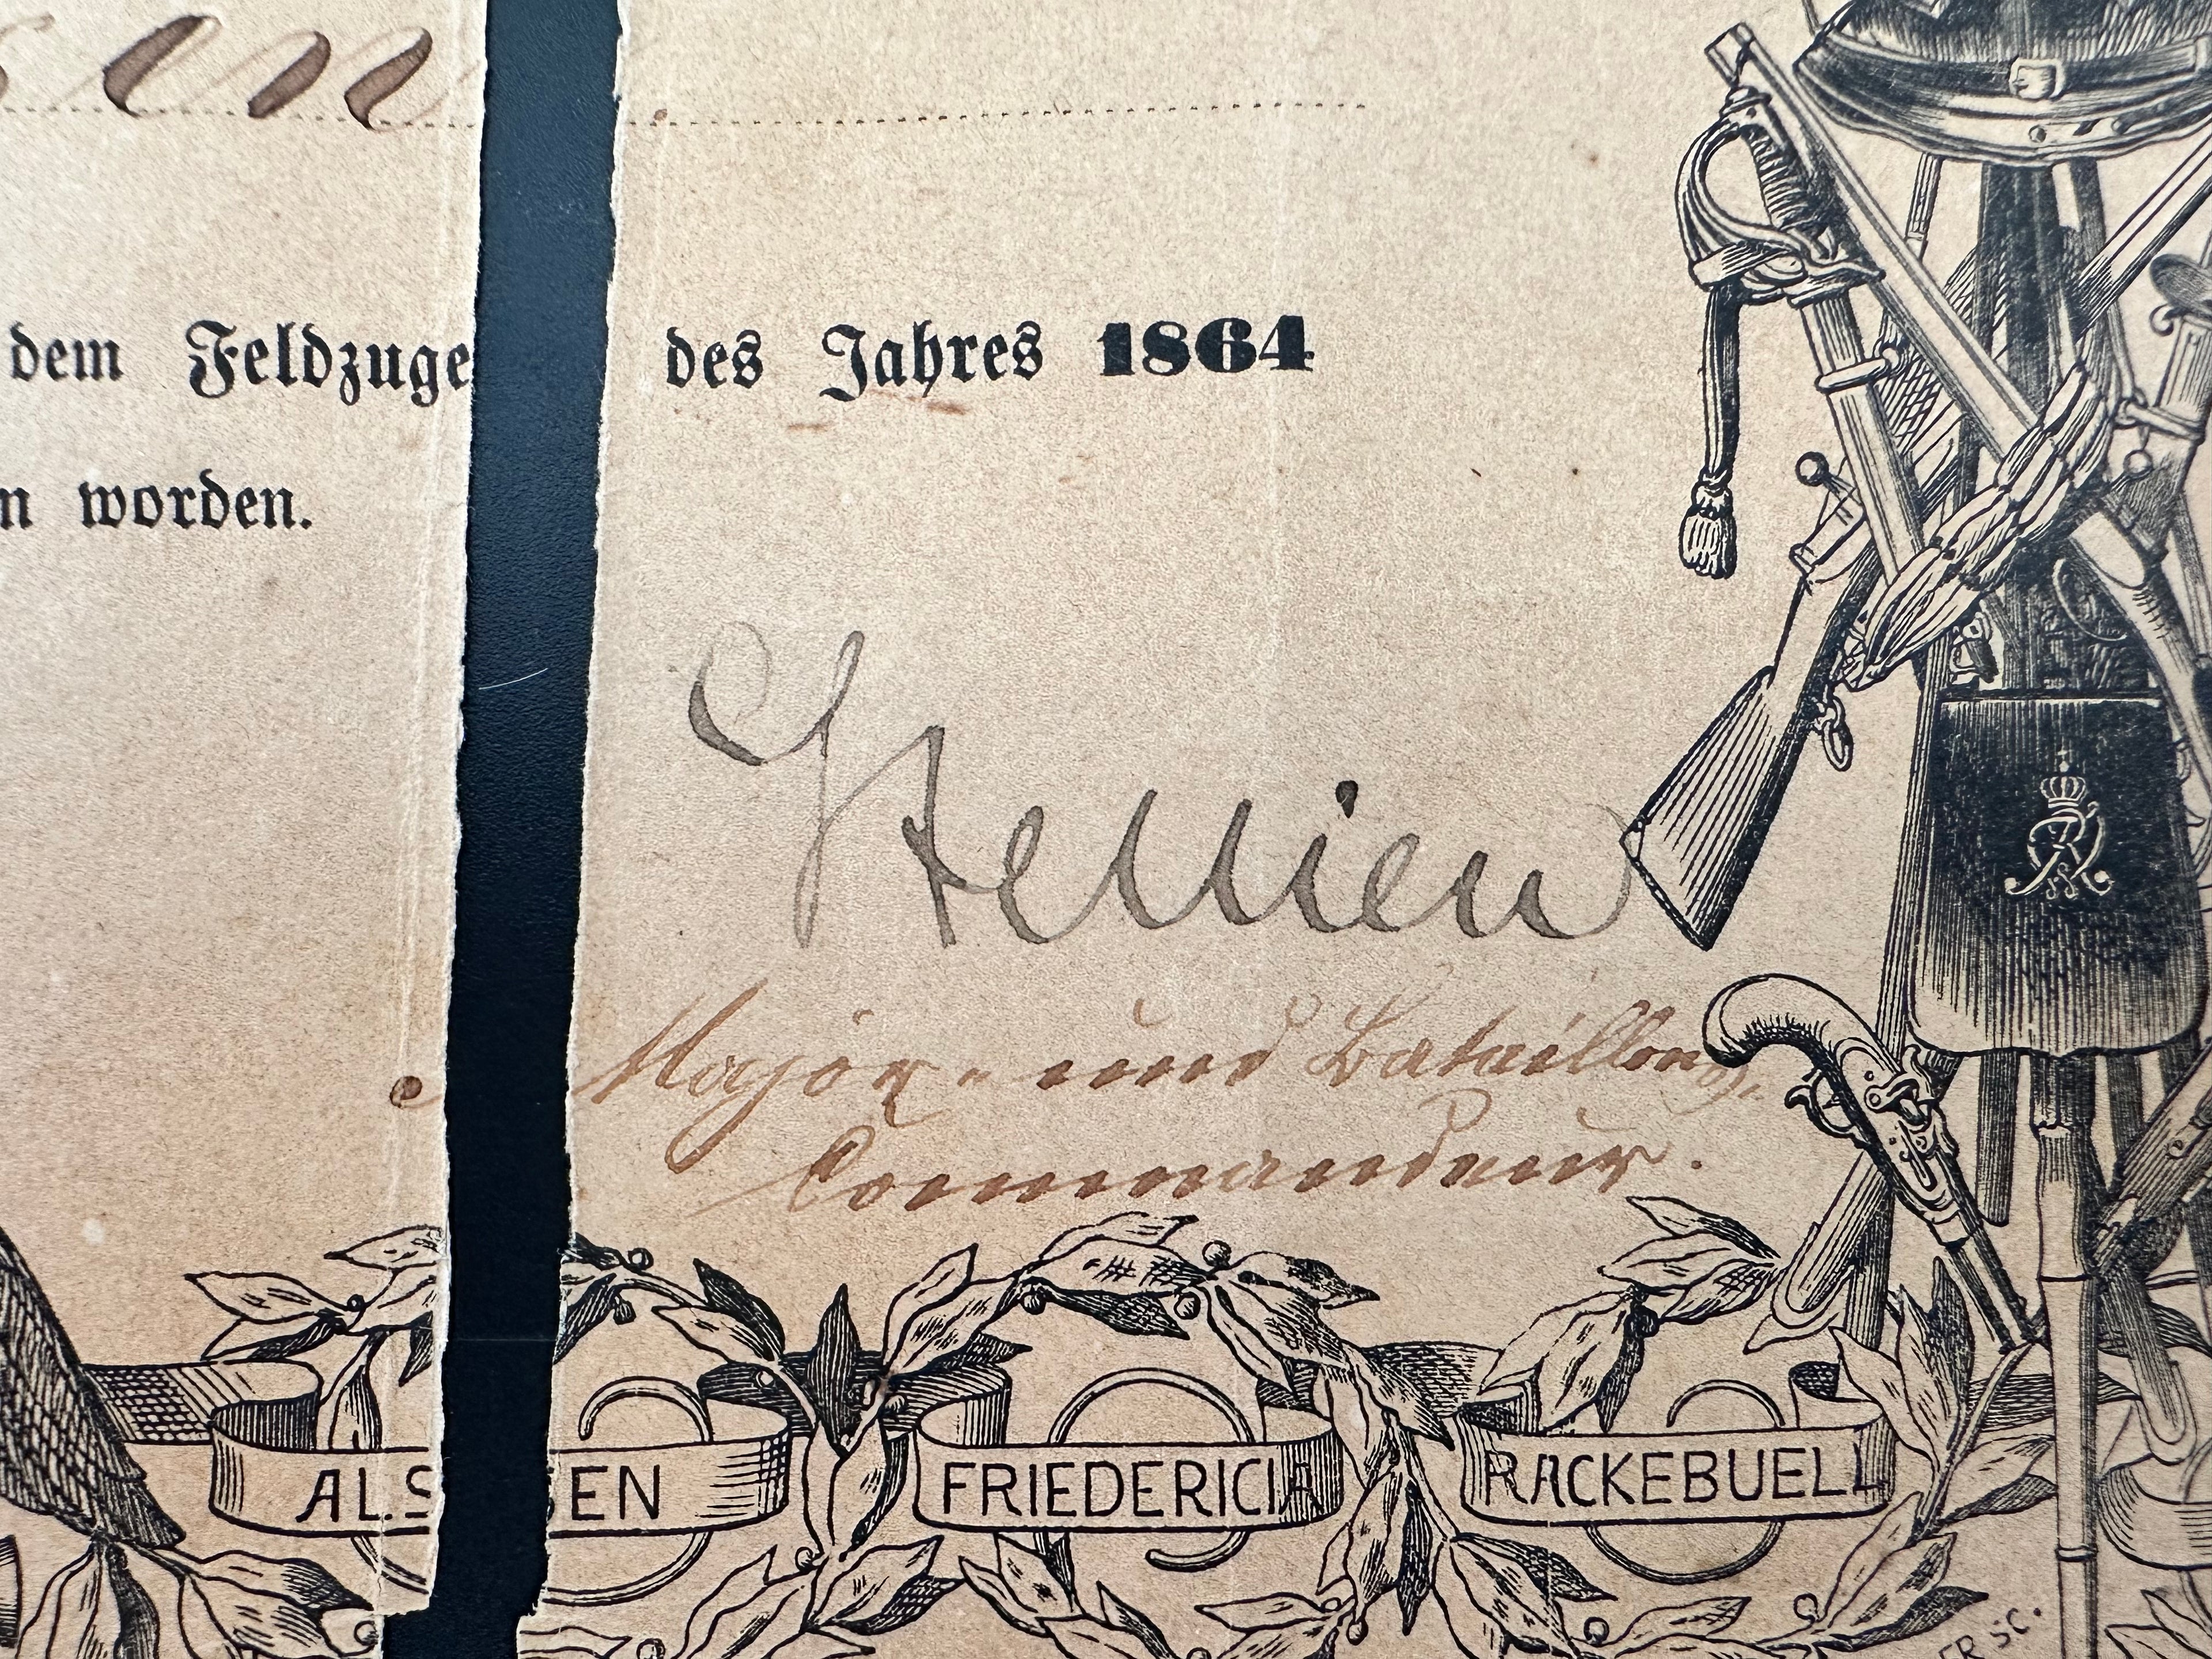 dem Feldzuge des Jahres 1864
n worden.
Major und Bataillons-
Commandeur.
ALSEN FRIEDERICIA RACKEBUELL
ER SC.